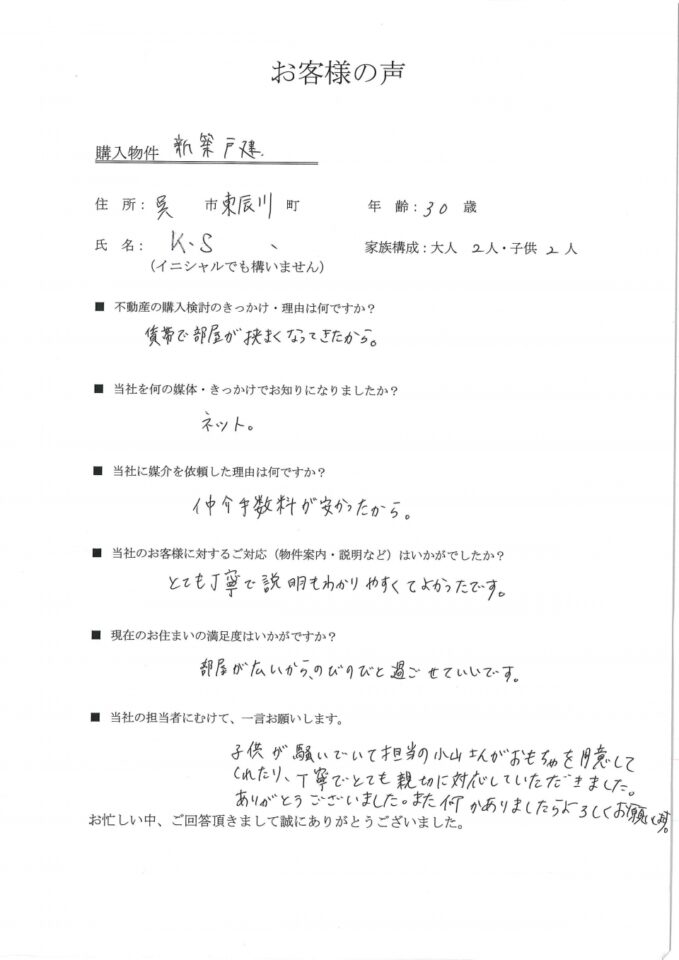 お客様の声
購入物件 新築戸建.
住 所： 呉 市 東辰川 町 年 齢：30 歳
氏 名： K.S 、 家族構成：大人 2人・子供 2人
（イニシャルでも構いません）
■ 不動産の購入検討のきっかけ・理由は何ですか？
賃帯で部屋が挟まくなってきたから。
■ 当社を何の媒体・きっかけでお知りになりましたか？
ネット。
■ 当社に媒介を依頼した理由は何ですか？
仲介手数料が安かったから。
■ 当社のお客様に対するご対応（物件案内・説明など）はいかがでしたか？
とても丁寧で説明もわかりやすくてよかったです。
■ 現在のお住まいの満足度はいかがですか？
部屋が広いから、のびのびと過ごせていいです。
■ 当社の担当者にむけて、一言お願いします。
子供が騒いでいて担当の小山さんがおもちゃを用意して
くれたり、丁寧でとても親切に対応していただきました。
ありがとうございました。また何かありましたらよろしくお願いします。
お忙しい中、ご回答頂きまして誠にありがとうございました。